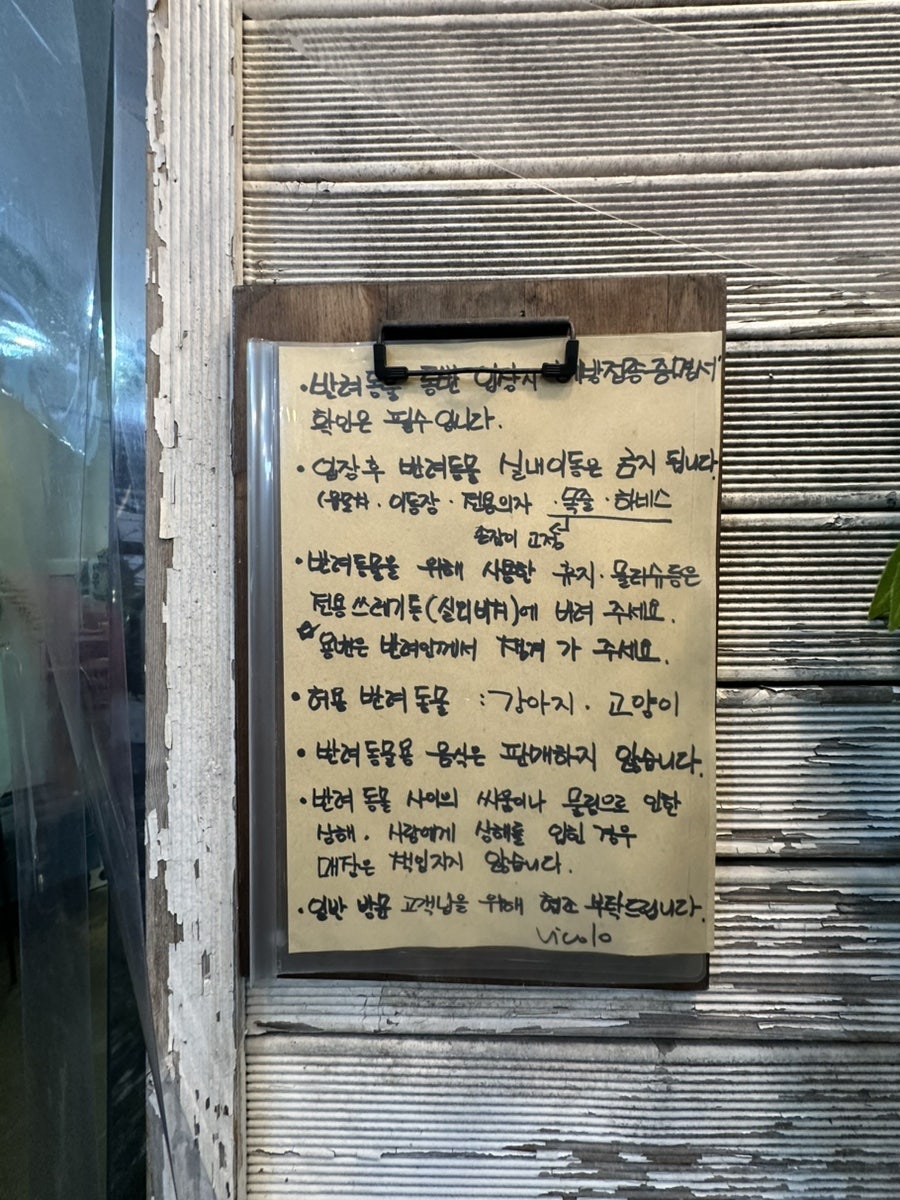 · 반려동물 동반 입장시 예방접종 증명서"
확인은 필수입니다.
· 입장 후 반려동물 실내이동은 금지 됩니다
이동장 · 전용의자 · 목줄 · 하네스
손잡이 고정
· 반려동물을 위해 사용한 휴지 · 물티슈등은
전용 쓰레기통(실외비치)에 버려 주세요.
☆ 용변은 반려인께서 챙겨 가 주세요.
· 허용 반려동물 : 강아지 · 고양이
· 반려동물용 음식은 판매하지 않습니다.
· 반려동물 사이의 싸움이나 물림으로 인한
상해 · 사람에게 상해를 입힌 경우
매장은 책임지지 않습니다.
· 일반 방문 고객님을 위해 협조 부탁드립니다.
Vicolo